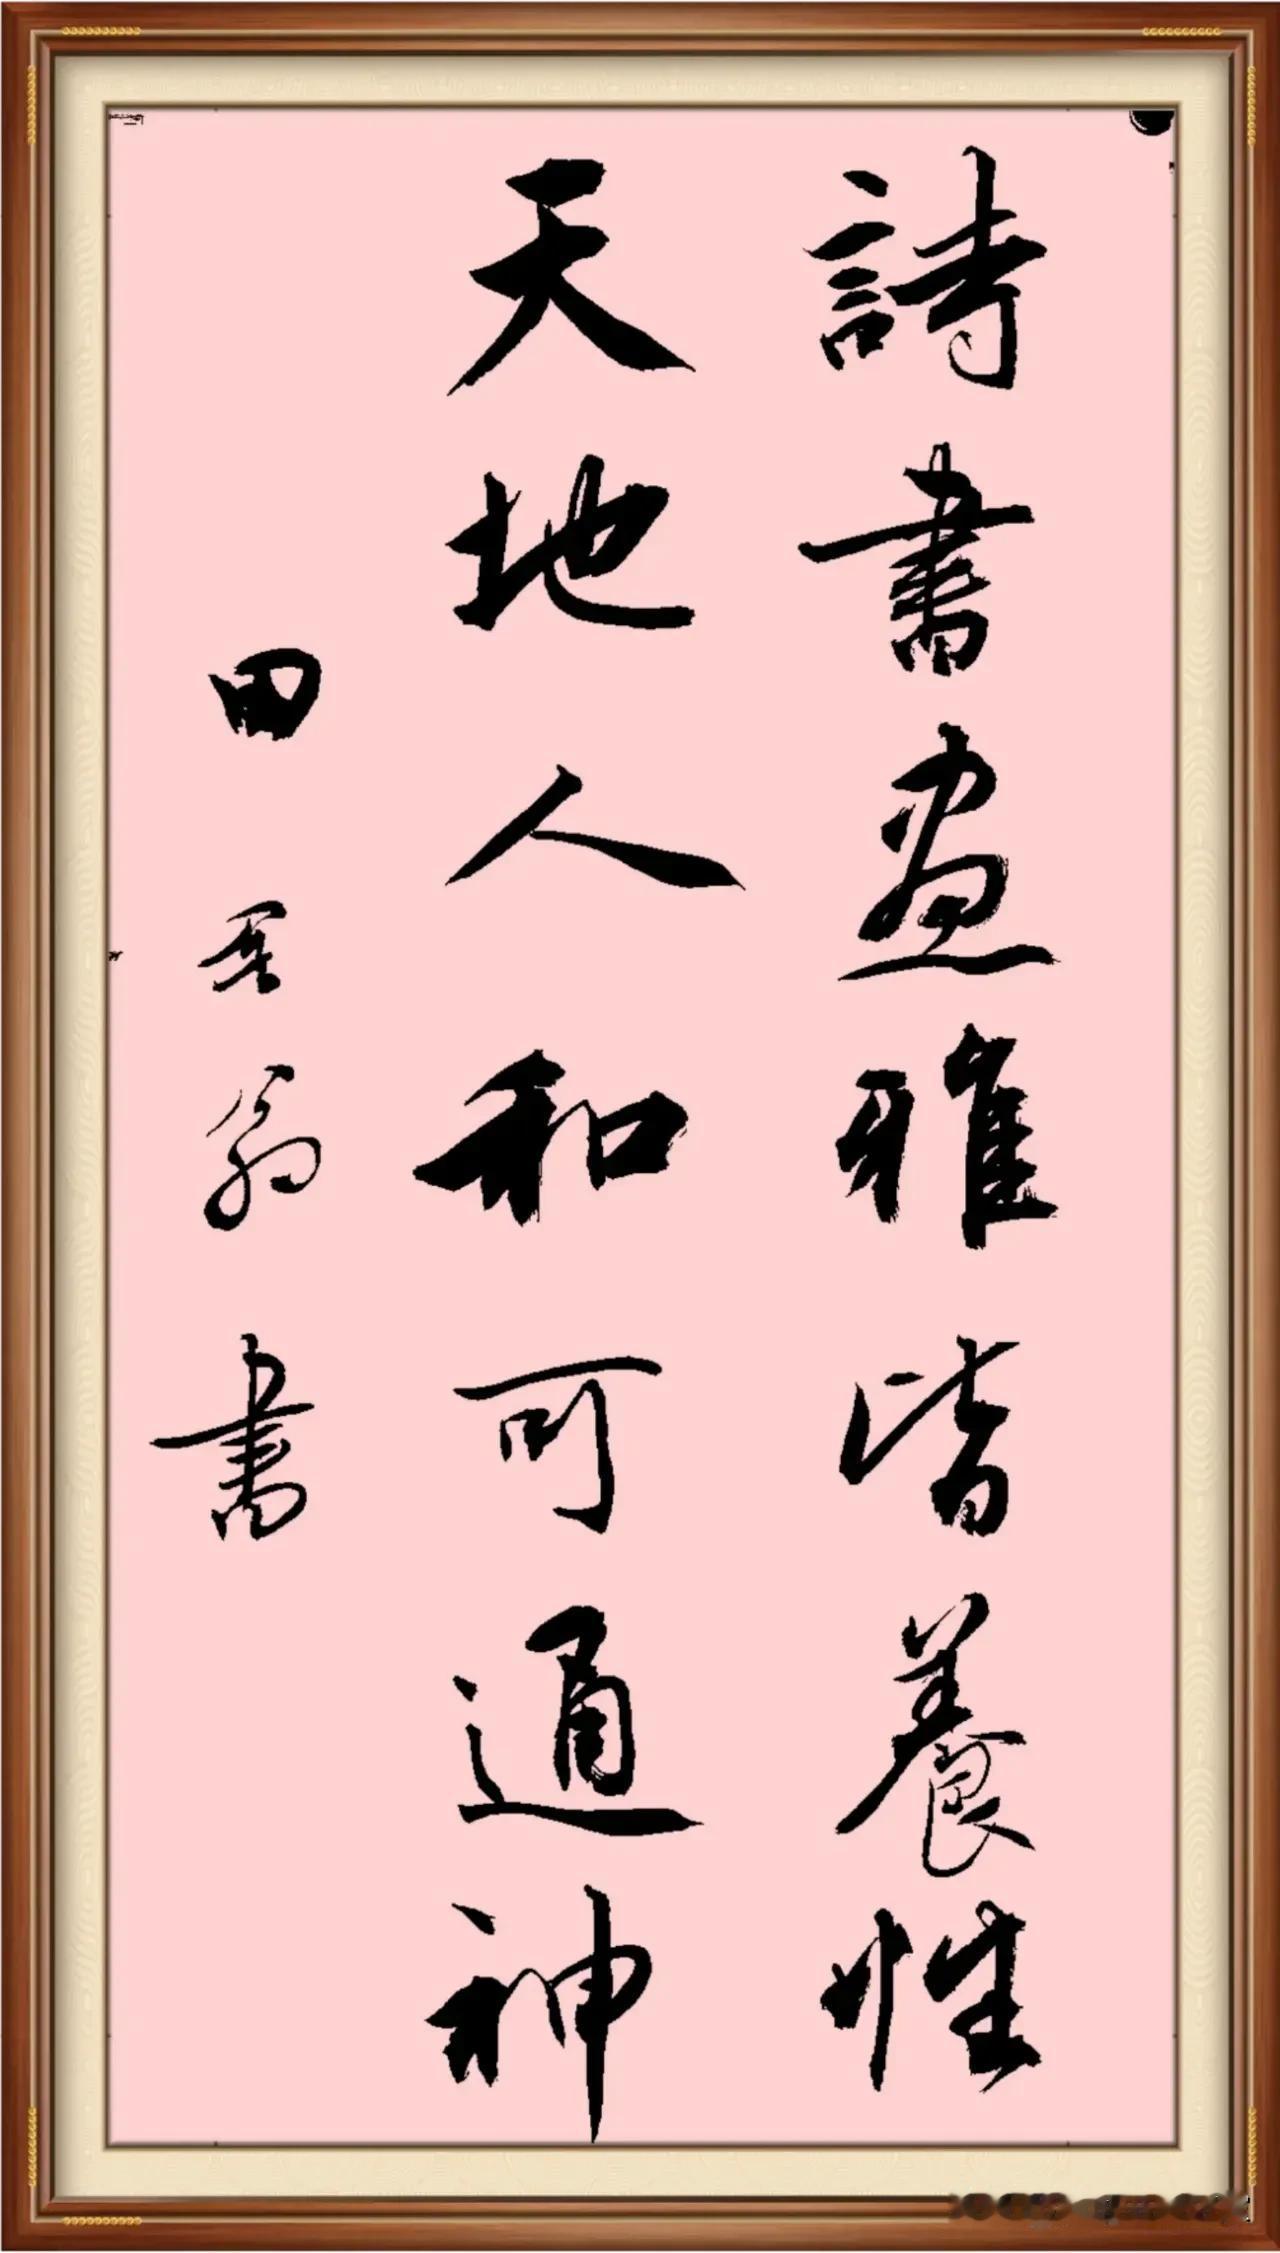 詩書畫雅皆養性
天地人和可通神
田翁書